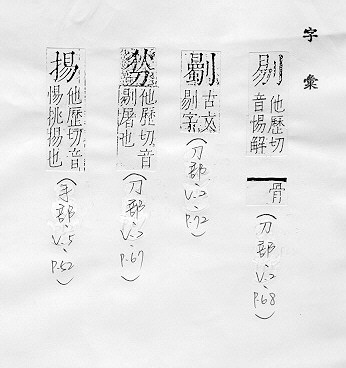 字彙
剔
他歷切
音惕解
骨
(刀部、V.2、P.68)
古文
剔字
(刀部、V.2、P.72)
他歷切音
剔屠也
(刀部、V.2、P.67)
掦
他歷切音
惕挑掦也
(手部、V.5、P.62)